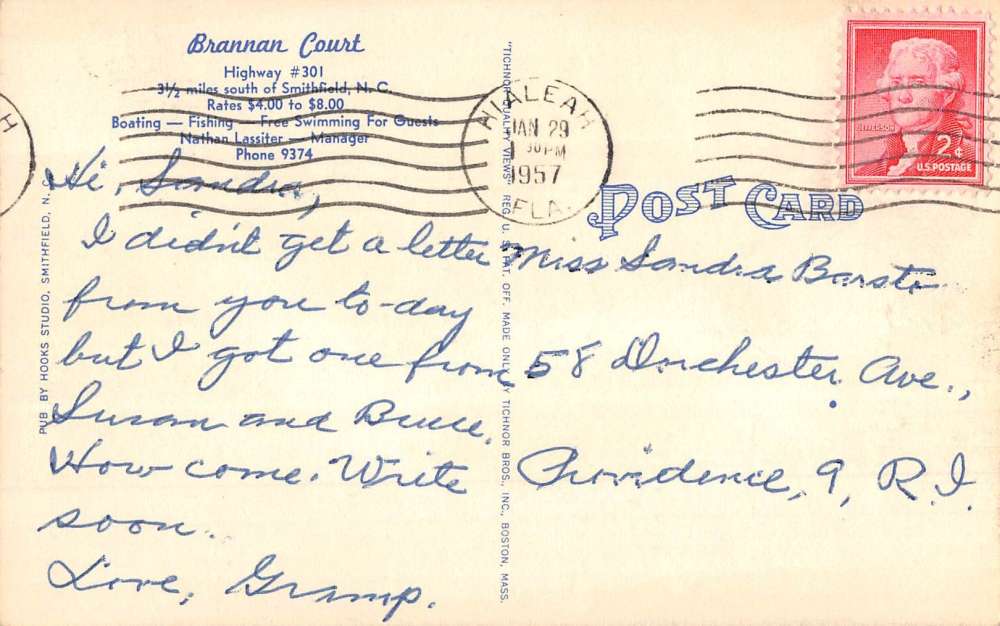 Brannan Court
Highway #301
3½ miles south of Smithfield, N. C.
Rates $4.00 to $8.00
Boating — Fishing — Free Swimming For Guests
Nathan Lassiter — Manager
Phone 9374
HIALEAH
JAN 29
30 PM
1957
FLA.
JEFFERSON
2¢
U.S. POSTAGE
POST CARD
Hi, Sandra,
I didn't get a letter
from you to-day
but I got one from
Susan and Bruce.
How come. Write
soon.
Love, Gramp.
Miss Sandra
58 Dorchester Ave.,
Providence, 9, R.I.
PUB BY HOOKS STUDIO, SMITHFIELD, N. C.
"TICHNOR QUALITY VIEWS" REG. U. S. PAT. OFF. MADE ONLY BY TICHNOR BROS., INC., BOSTON, MASS.